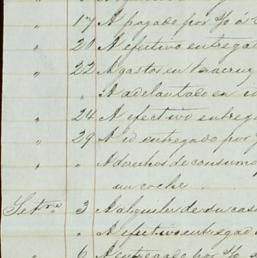 " 17 A pagado por
" 20 A efectivo entregad
" 22 A gastos en Veracruz
" " A adelantado en
" 24 A efectivo entreg
" 29 A id entregado por
" " A derechos de consumo
un coche
Setre 3 A alquiler de su casa
" " A efectivo entregad
" 6 A entregado por